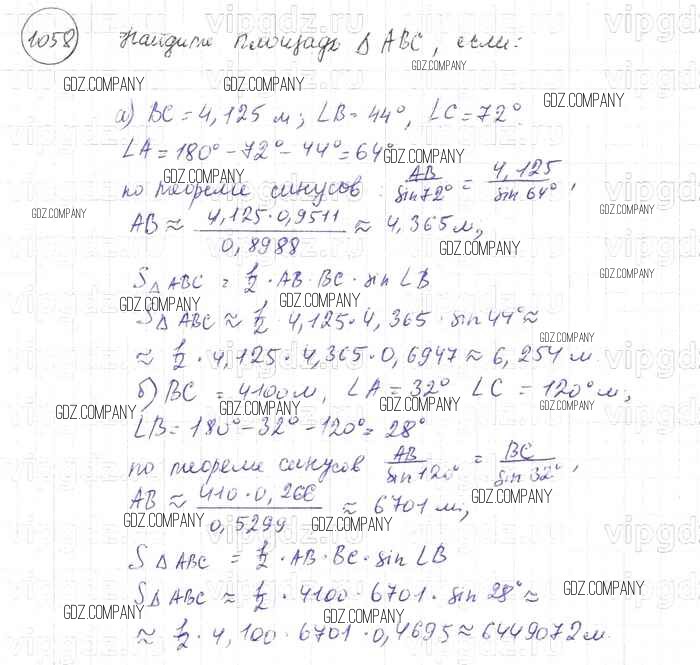 1058 Найдите площадь Δ ABC, если:
GDZ.COMPANY
GDZ.COMPANY GDZ.COMPANY
GDZ.COMPANY
а) BC = 4,125 м; ∠B = 44°, ∠C = 72°.
∠A = 180° - 72° - 44° = 64°
GDZ.COMPANY
GDZ.COMPANY
по теореме синусов: AB/sin72° = 4,125/sin64°,
GDZ.COMPANY GDZ.COMPANY
AB ≈ 4,125·0,9511/0,8988 ≈ 4,365 м,
GDZ.COMPANY
GDZ.COMPANY
S Δ ABC = 1/2 · AB · BC · sin ∠B
GDZ.COMPANY GDZ.COMPANY
S Δ ABC ≈ 1/2 · 4,125 · 4,365 · sin 44° ≈
GDZ.COMPANY
≈ 1/2 · 4,125 · 4,365 · 0,6947 ≈ 6,254 м.
б) BC = 4100 м, ∠A = 32° ∠C = 120° м;
GDZ.COMPANY GDZ.COMPANY GDZ.COMPANY GDZ.COMPANY
∠B = 180° - 32° - 120° = 28°
по теореме синусов AB/sin120° = BC/sin32°,
GDZ.COMPANY
GDZ.COMPANY
AB ≈ 410·0,266/0,5299 ≈ 6701 м,
GDZ.COMPANY GDZ.COMPANY
S Δ ABC = 1/2 · AB · BC · sin ∠B
S Δ ABC ≈ 1/2 · 4100 · 6701 · sin 28° ≈
GDZ.COMPANY
GDZ.COMPANY GDZ.COMPANY
≈ 1/2 · 4,100 · 6701 · 0,4695 ≈ 6449072 м.